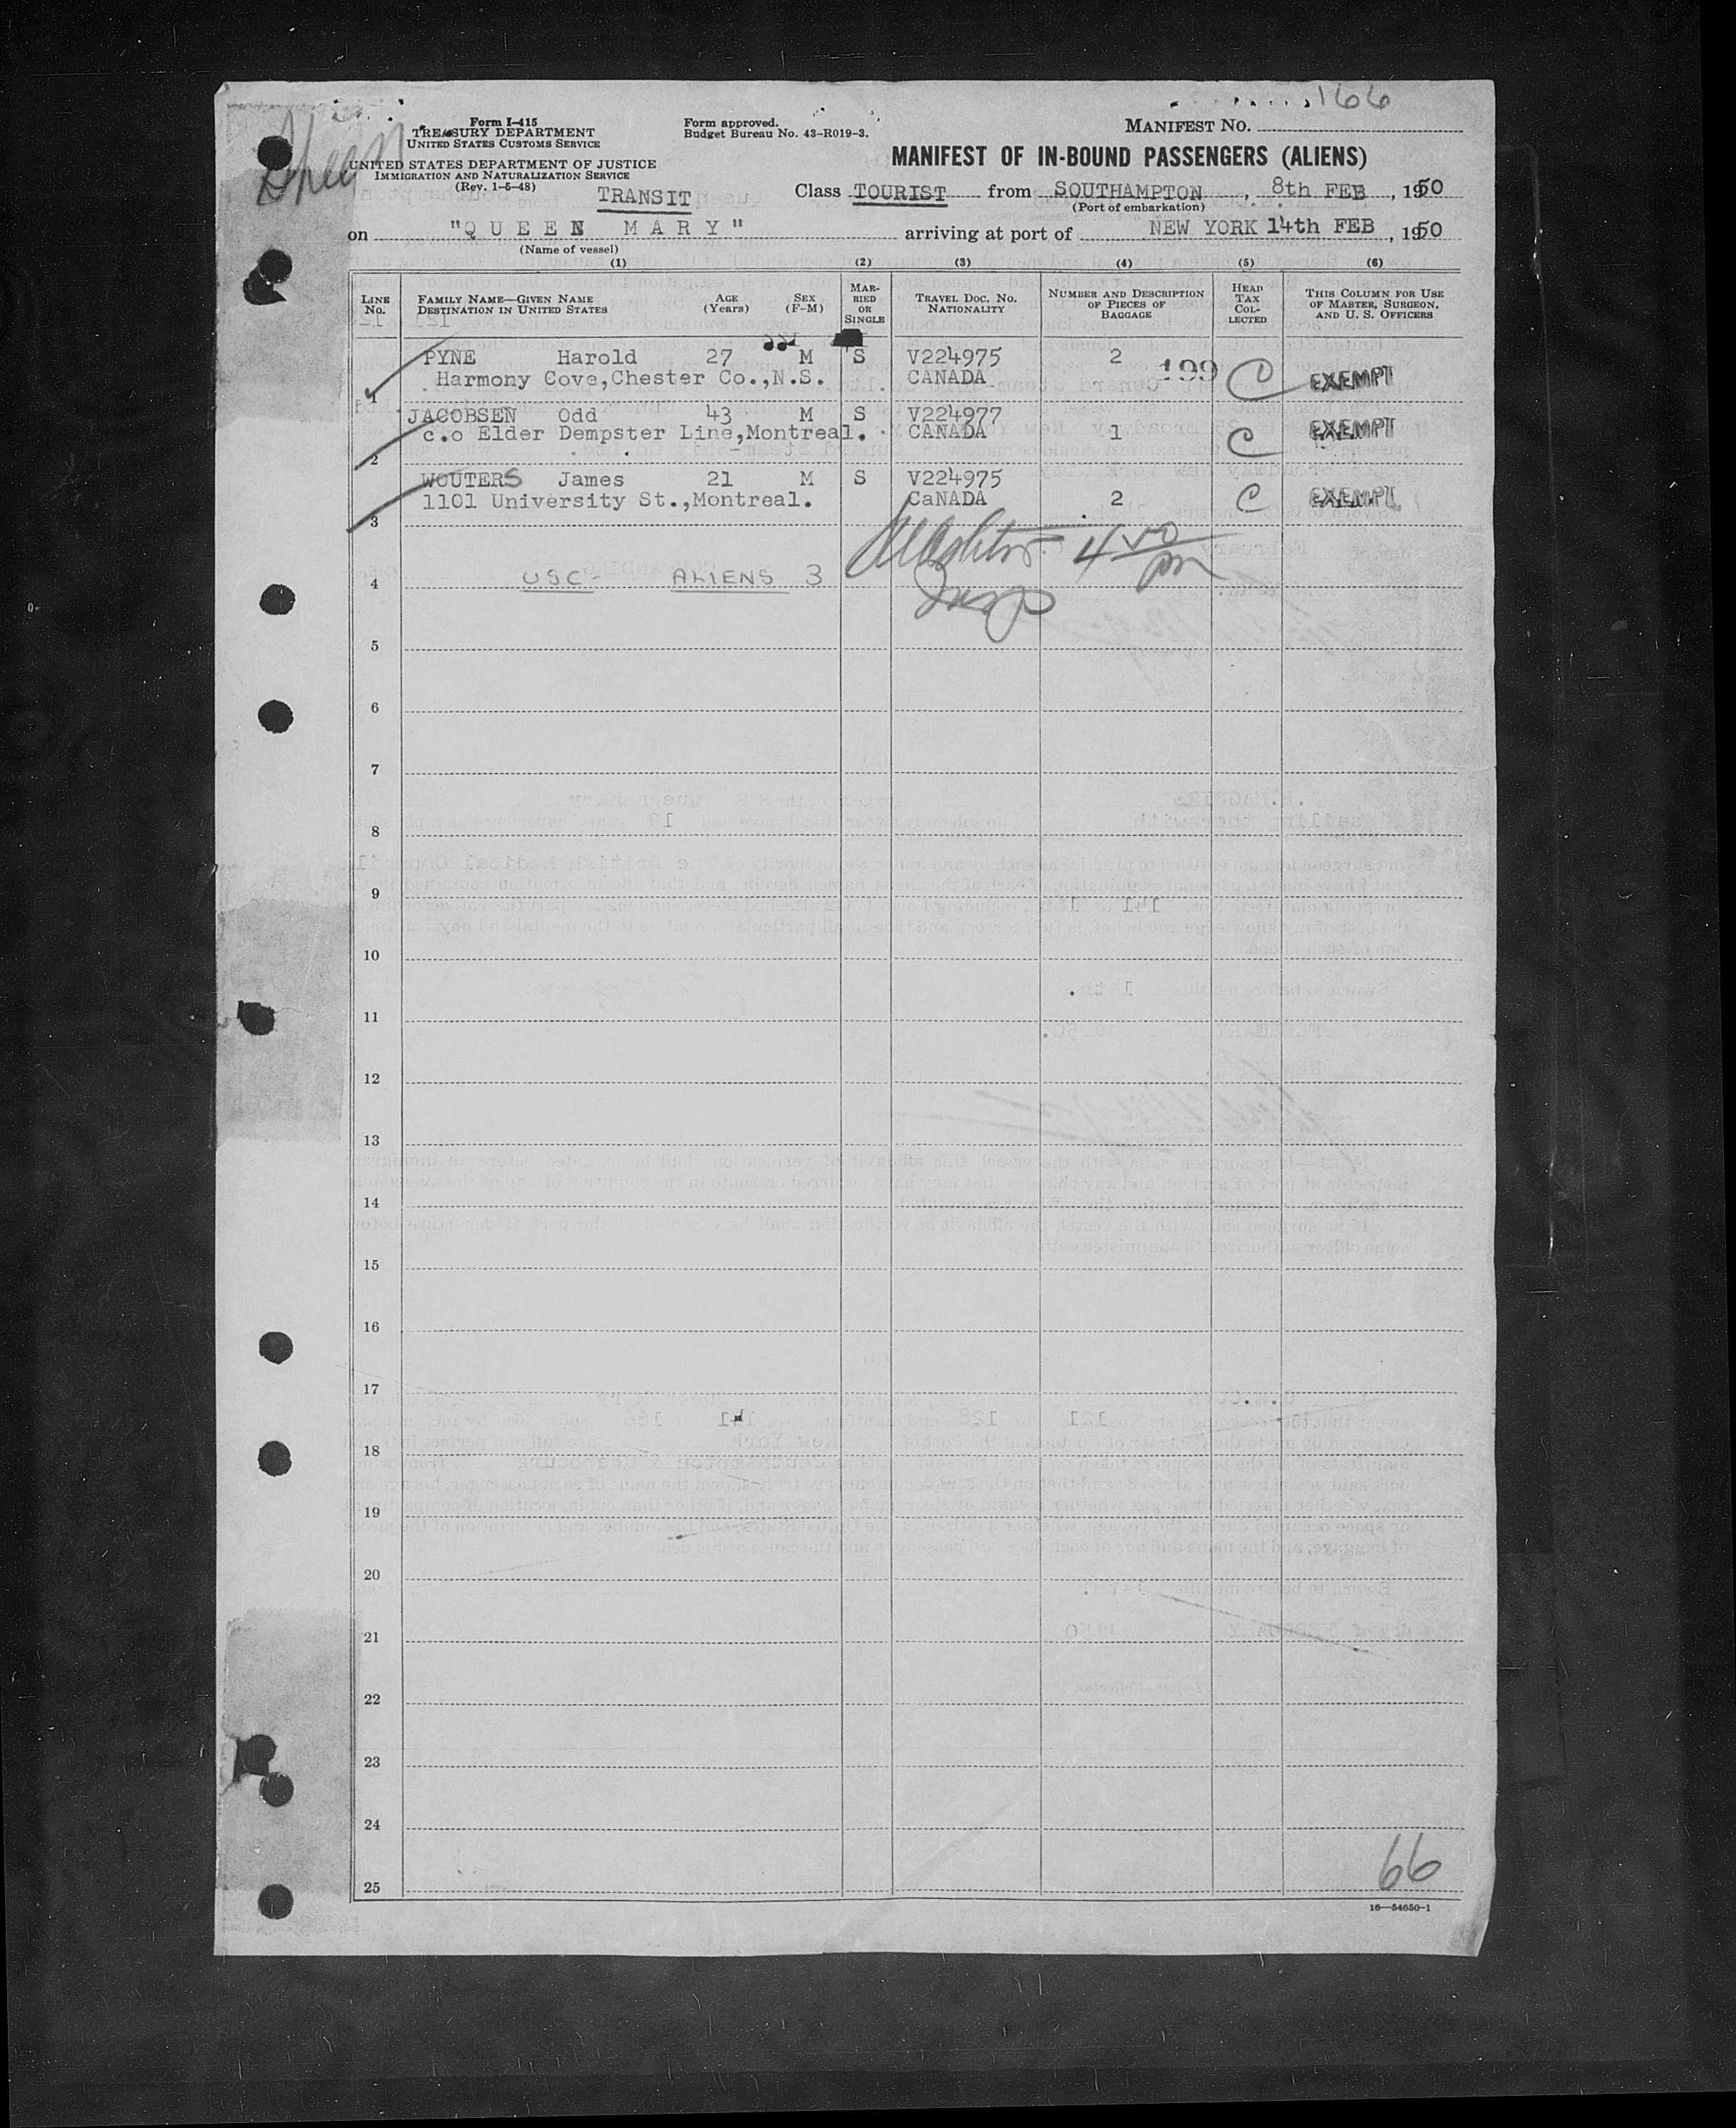 166
Form I-415
TREASURY DEPARTMENT
UNITED STATES CUSTOMS SERVICE
UNITED STATES DEPARTMENT OF JUSTICE
IMMIGRATION AND NATURALIZATION SERVICE
(Rev. 1-5-48)
Form approved.
Budget Bureau No. 43-R019-3.
MANIFEST NO.
MANIFEST OF IN-BOUND PASSENGERS (ALIENS)
TRANSIT Class TOURIST from SOUTHAMPTON, 8th FEB, 1950
(Port of embarkation)
on "QUEEN MARY" arriving at port of NEW YORK 14th FEB, 1950
(Name of vessel)
(1) (2) (3) (4) (5) (6)
LINE No. FAMILY NAME—GIVEN NAME DESTINATION IN UNITED STATES AGE (Years) SEX (F-M) MARRIED OR SINGLE TRAVEL DOC. NO. NATIONALITY NUMBER AND DESCRIPTION OF PIECES OF BAGGAGE HEAD TAX COLLECTED THIS COLUMN FOR USE OF MASTER, SURGEON, AND U. S. OFFICERS
PYNE Harold 27 M S V224975 2 199 C EXEMPT
1 Harmony Cove,Chester Co.,N.S. CANADA
JACOBSEN Odd 43 M S V224977 EXEMPT
2 c.o Elder Dempster Line,Montreal. CANADA 1 C
WOUTERS James 21 M S V224975
3 1101 University St.,Montreal. CaNADA 2 C EXEMPT
450 pm
4 USC- ALIENS 3
Insp
5
6
7
8
9
10
11
12
13
14
15
16
17
18
19
20
21
22
23
24
25
66
16—54650-1